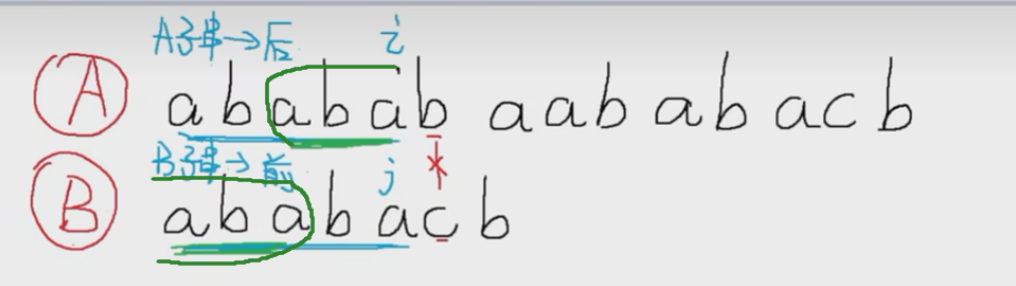 A子串→后 i
A a b a b a b a a b a b a c b
B子串→前 j
B a b a b a c b